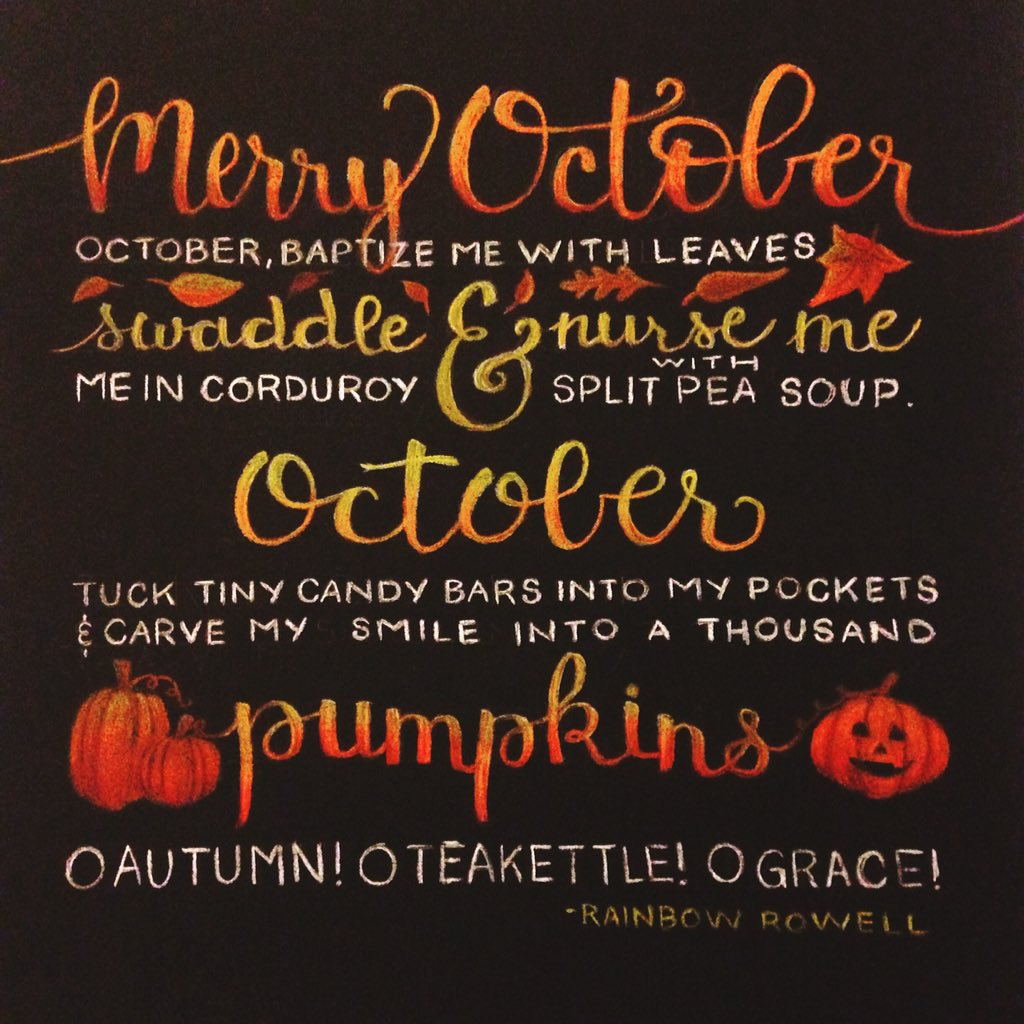 Merry October
OCTOBER, BAPTIZE ME WITH LEAVES
swaddle & nurse me
ME IN CORDUROY WITH SPLIT PEA SOUP.
October
TUCK TINY CANDY BARS INTO MY POCKETS
& CARVE MY SMILE INTO A THOUSAND
pumpkins
O AUTUMN! O TEAKETTLE! O GRACE!
-RAINBOW ROWELL